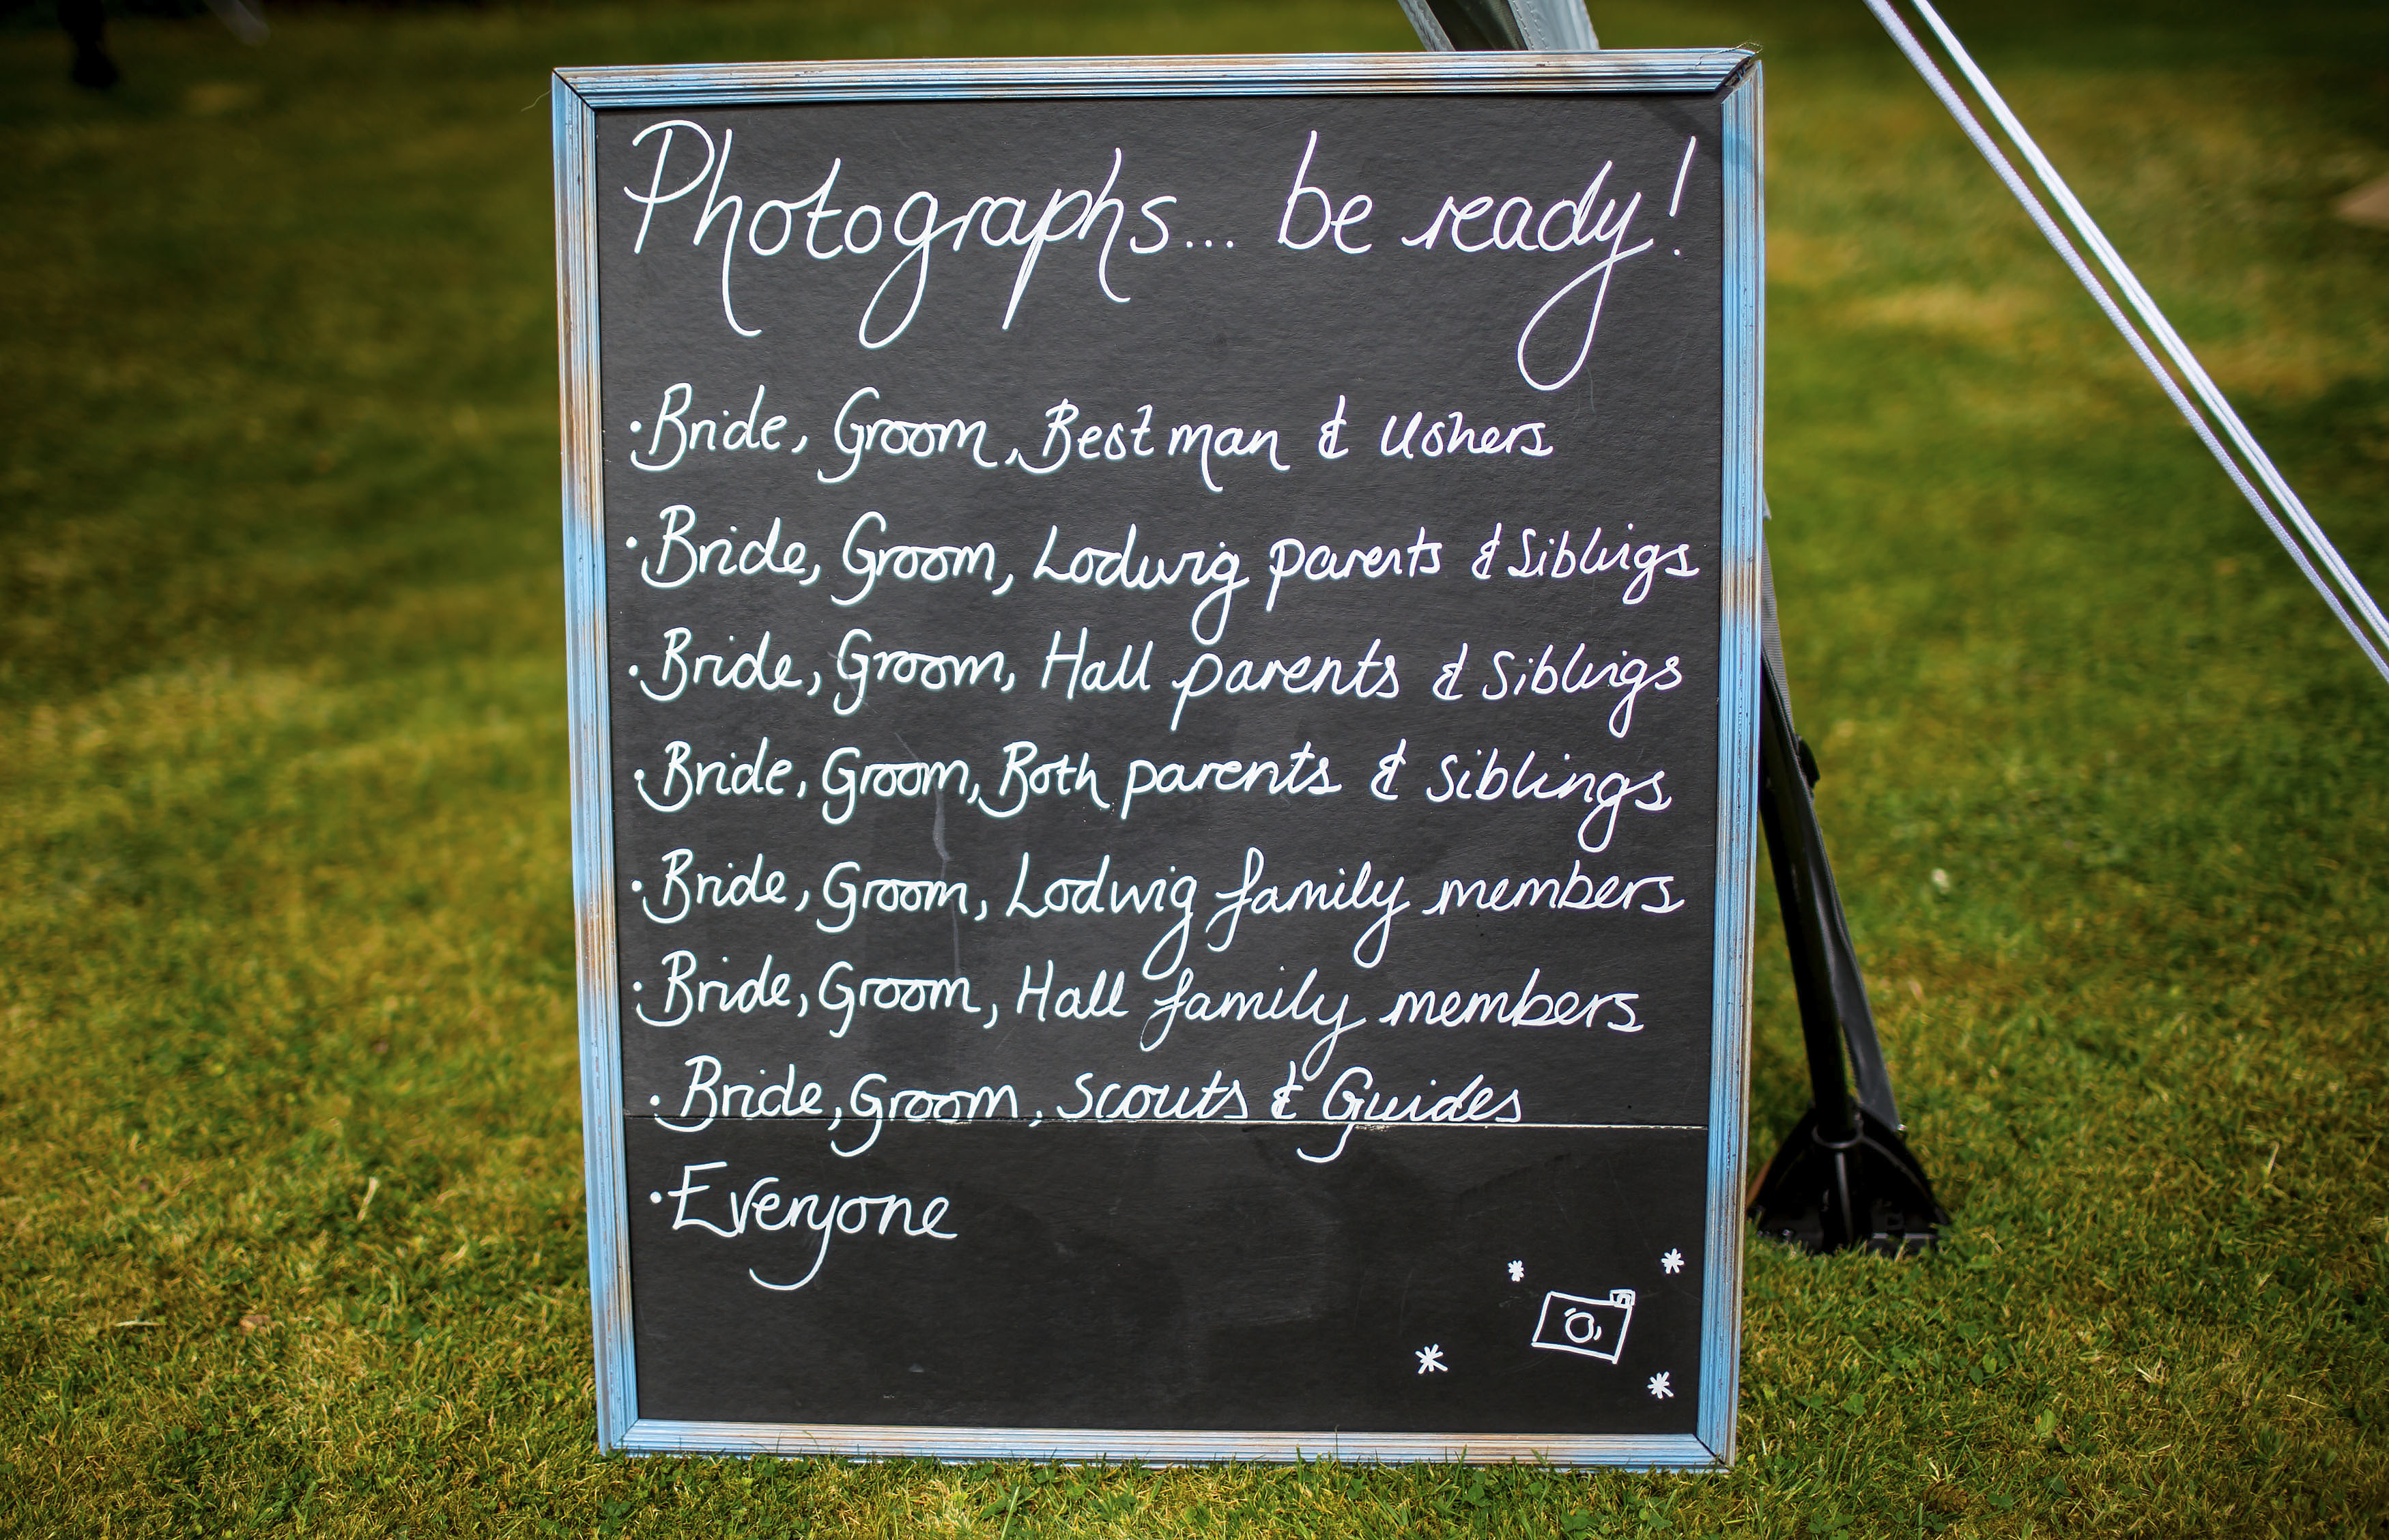 Photographs... be ready!
· Bride, Groom, Best man & Ushers
· Bride, Groom, Lodwig parents & Siblings
· Bride, Groom, Hall parents & Siblings
· Bride, Groom, Both parents & Siblings
· Bride, Groom, Lodwig family members
· Bride, Groom, Hall family members
· Bride, Groom, Scouts & Guides
· Everyone